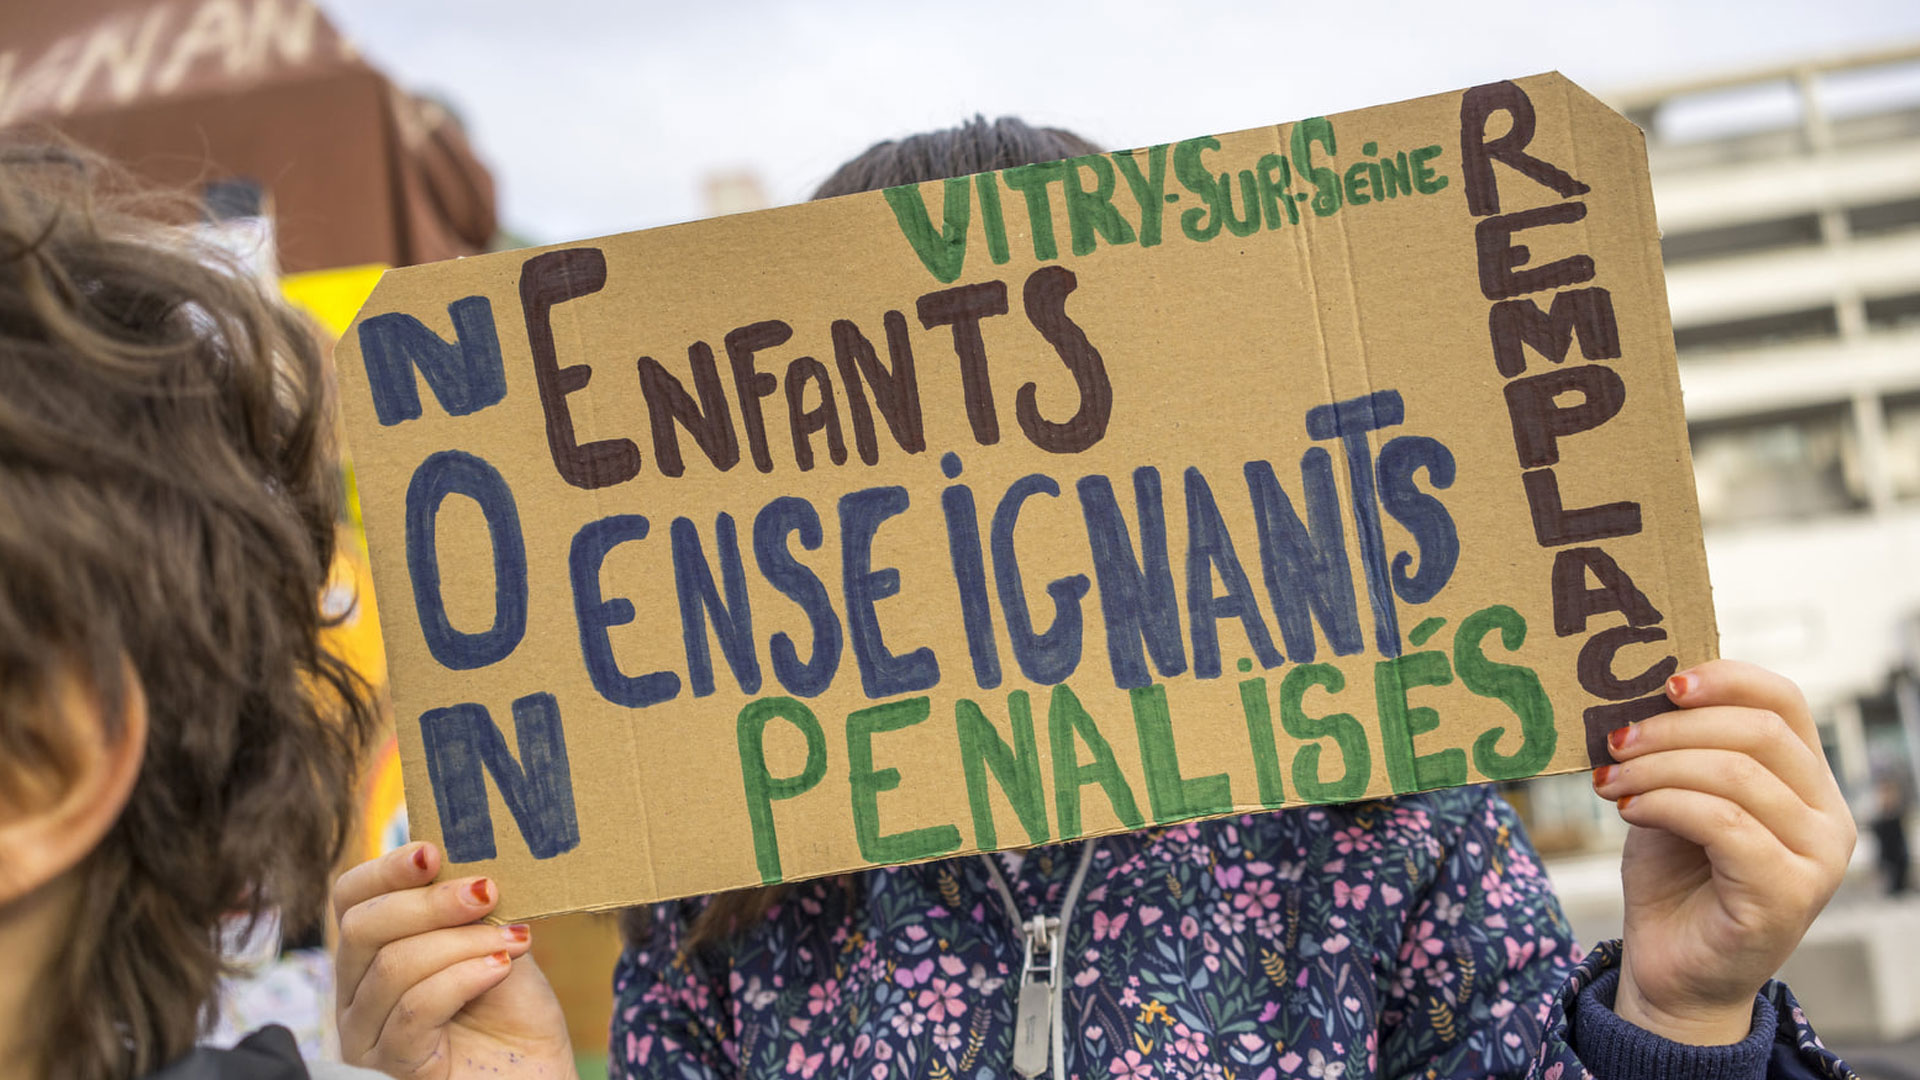 VITRY-SUR-SEINE
NON
ENFANTS
ENSEIGNANTS
PENALISÉS
REMPLAC